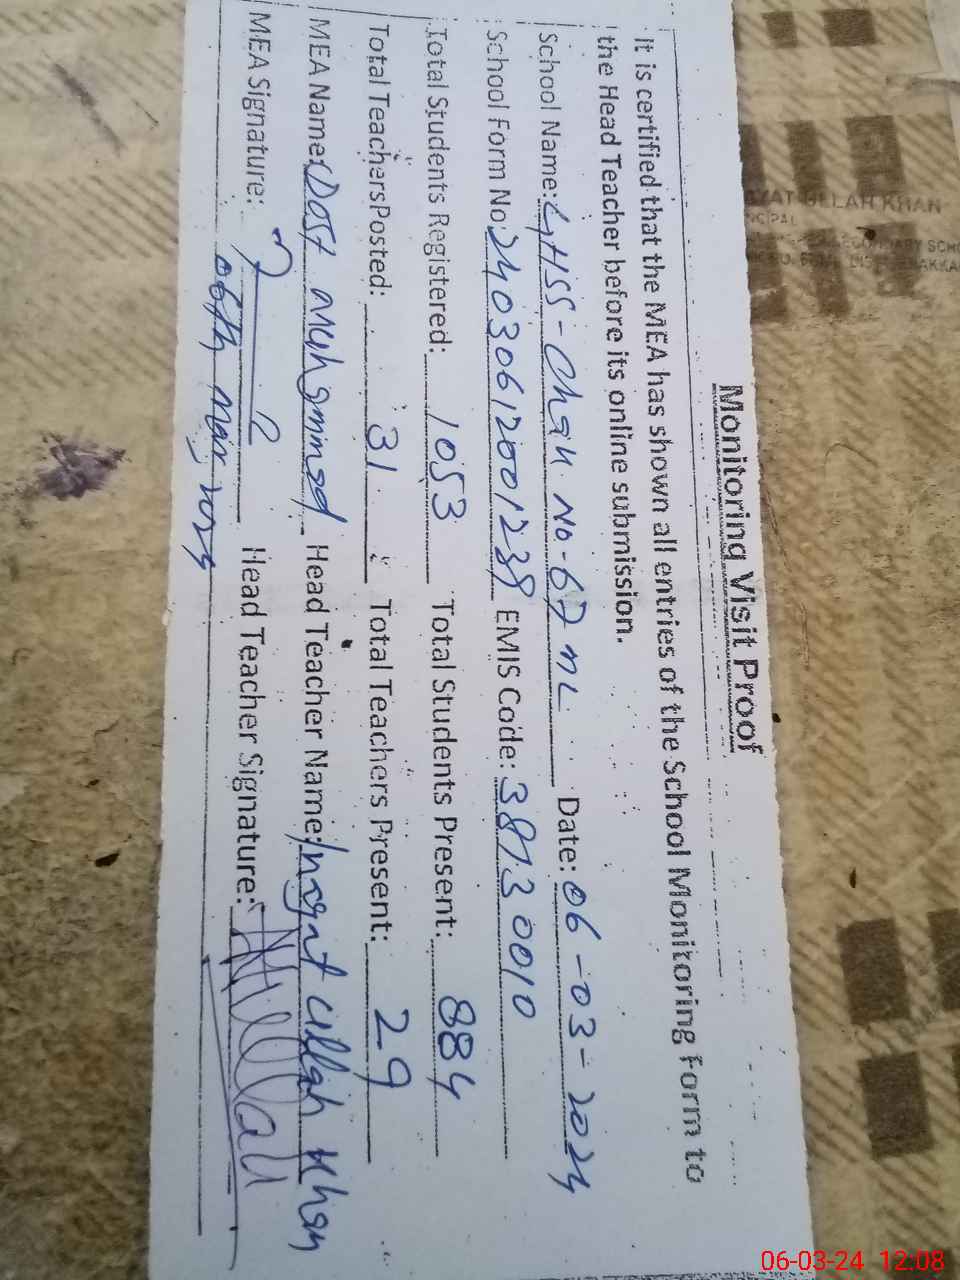 Monitoring Visit Proof
It is certified that the MEA has shown all entries of the School Monitoring Form to
the Head Teacher before its online submission.
School Name: GHSS-Chak No-67 ML Date: 06-03-2024
School Form No: 24030612001239 EMIS Code: 38130010
Total Students Registered: 1053 Total Students Present: 884
Total Teachers Posted: 31 Total Teachers Present: 29
MEA Name: Dost Muhammad Head Teacher Name: Inayat Ullah Khan
MEA Signature: Head Teacher Signature:
06th Mar 2024
ULLAH KHAN
06-03-24 12:08